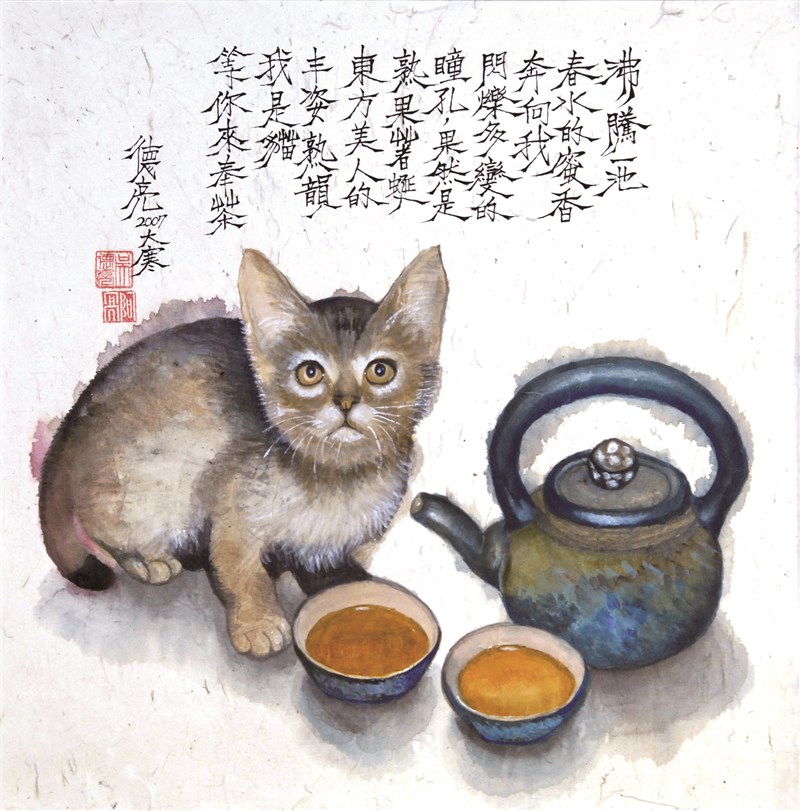 沸騰一池
春水的蜜香
奔向我
閃爍多變的
瞳孔,果然是
熟果著蜒
東方美人的
丰姿熟韻
我是貓
等你來奉茶
德亮
2007大寒